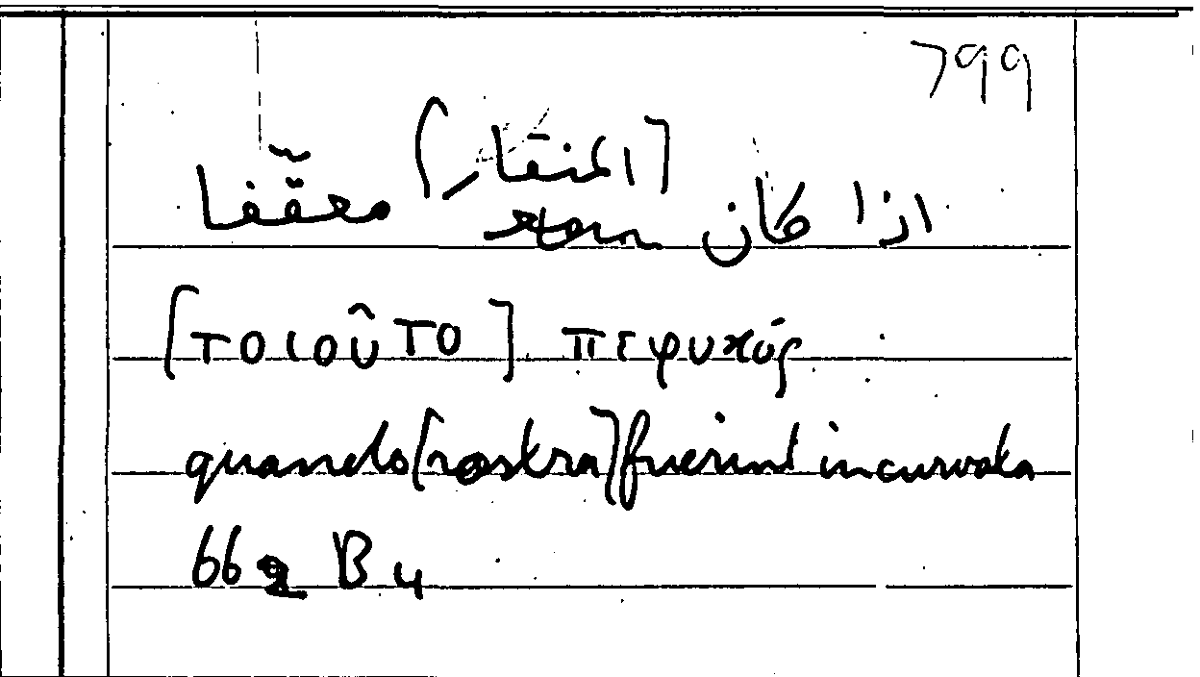 799
اذا كان [المنقار] معقّفا
[τοιοῦτο] πεφυκός
quando [rostra] fuerint incurvata
662 B 4